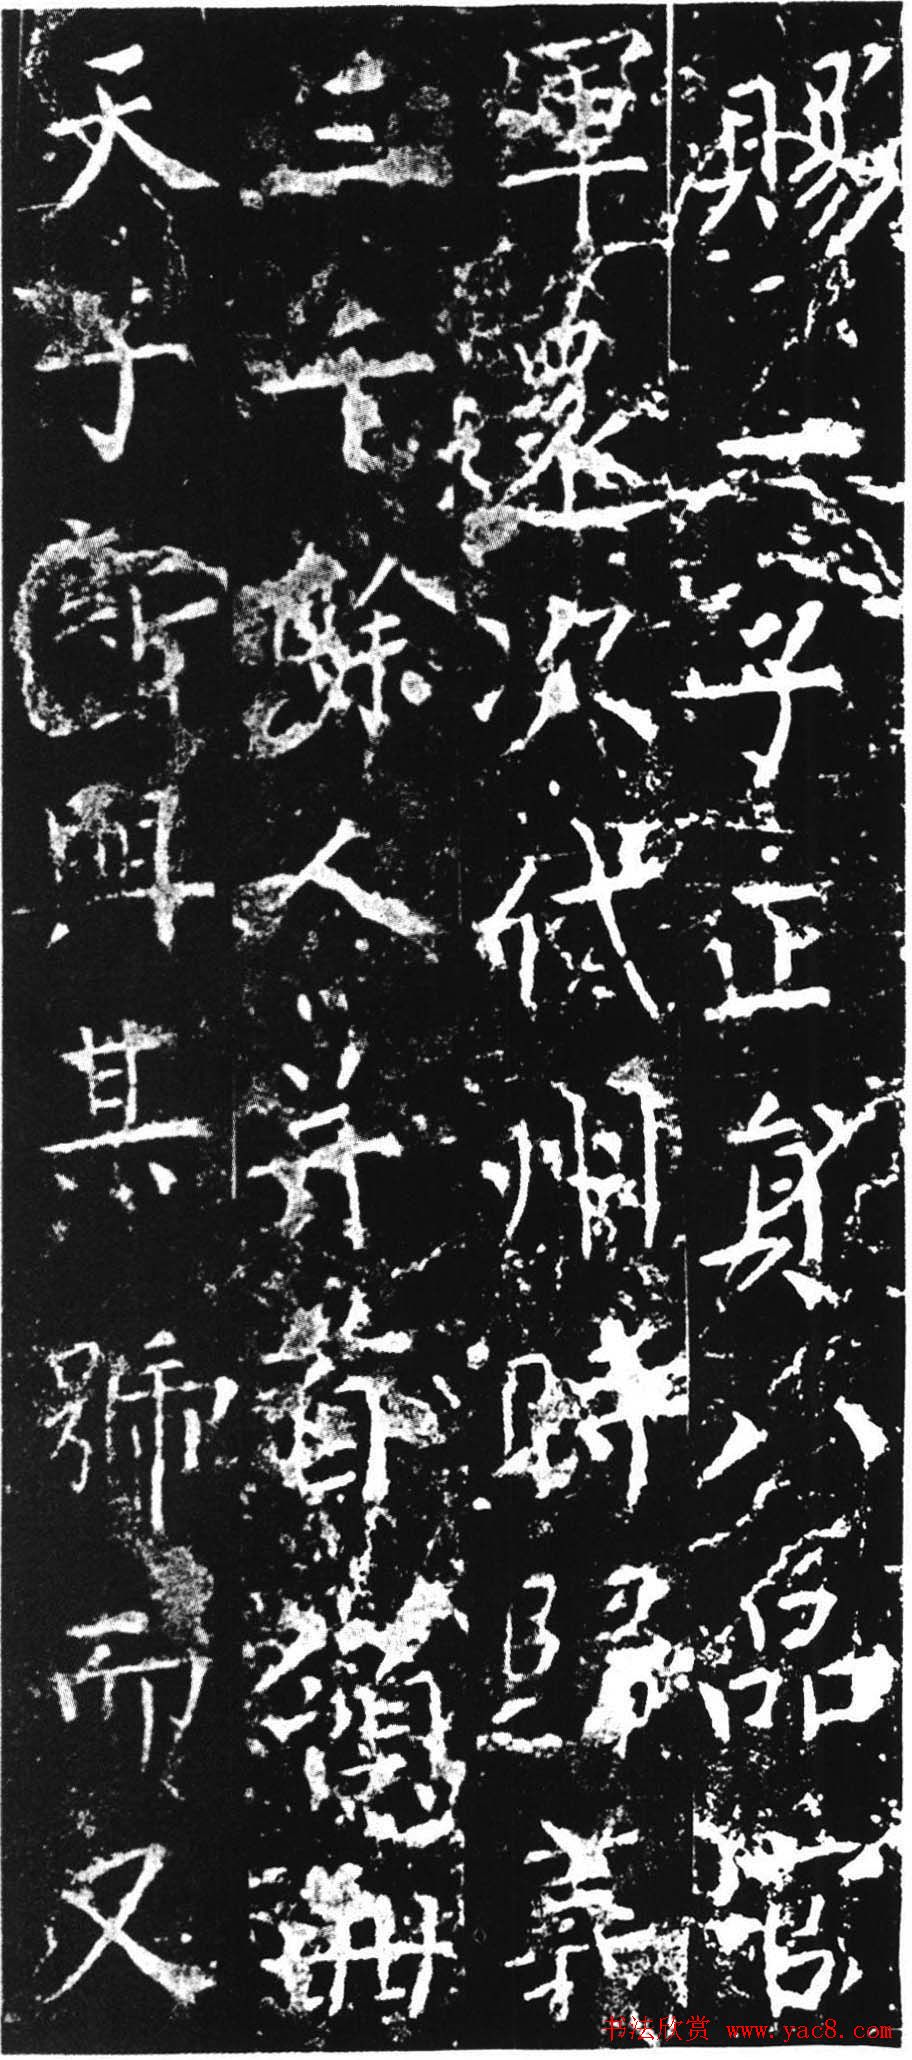 賜一子正員八品官
軍還次代州時歸義
三千餘人并
天子興其號而又
书法欣赏 www.yac8.com